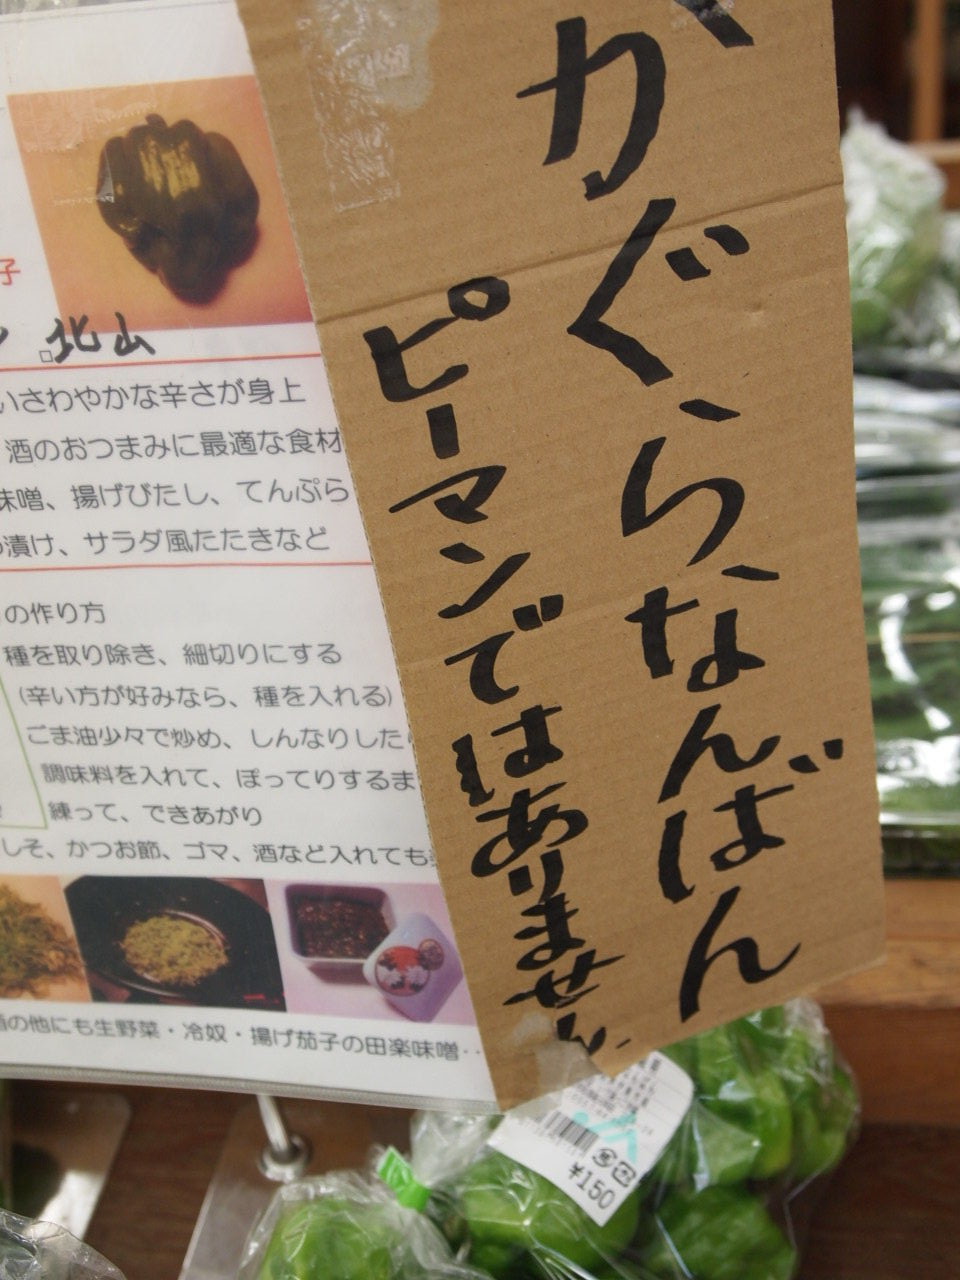 かぐらなんばん
ピーマンではありません
子
北山
いさわやかな辛さが身上
酒のおつまみに最適な食材
味噌、揚げびたし、てんぷら
漬け、サラダ風たたきなど
の作り方
種を取り除き、細切りにする
(辛い方が好みなら、種を入れる)
ごま油少々で炒め、しんなりした
調味料を入れて、ぽってりするま
練って、できあがり
しそ、かつお節、ゴマ、酒など入れても
の他にも生野菜・冷奴・揚げ茄子の田楽味噌・・
¥150